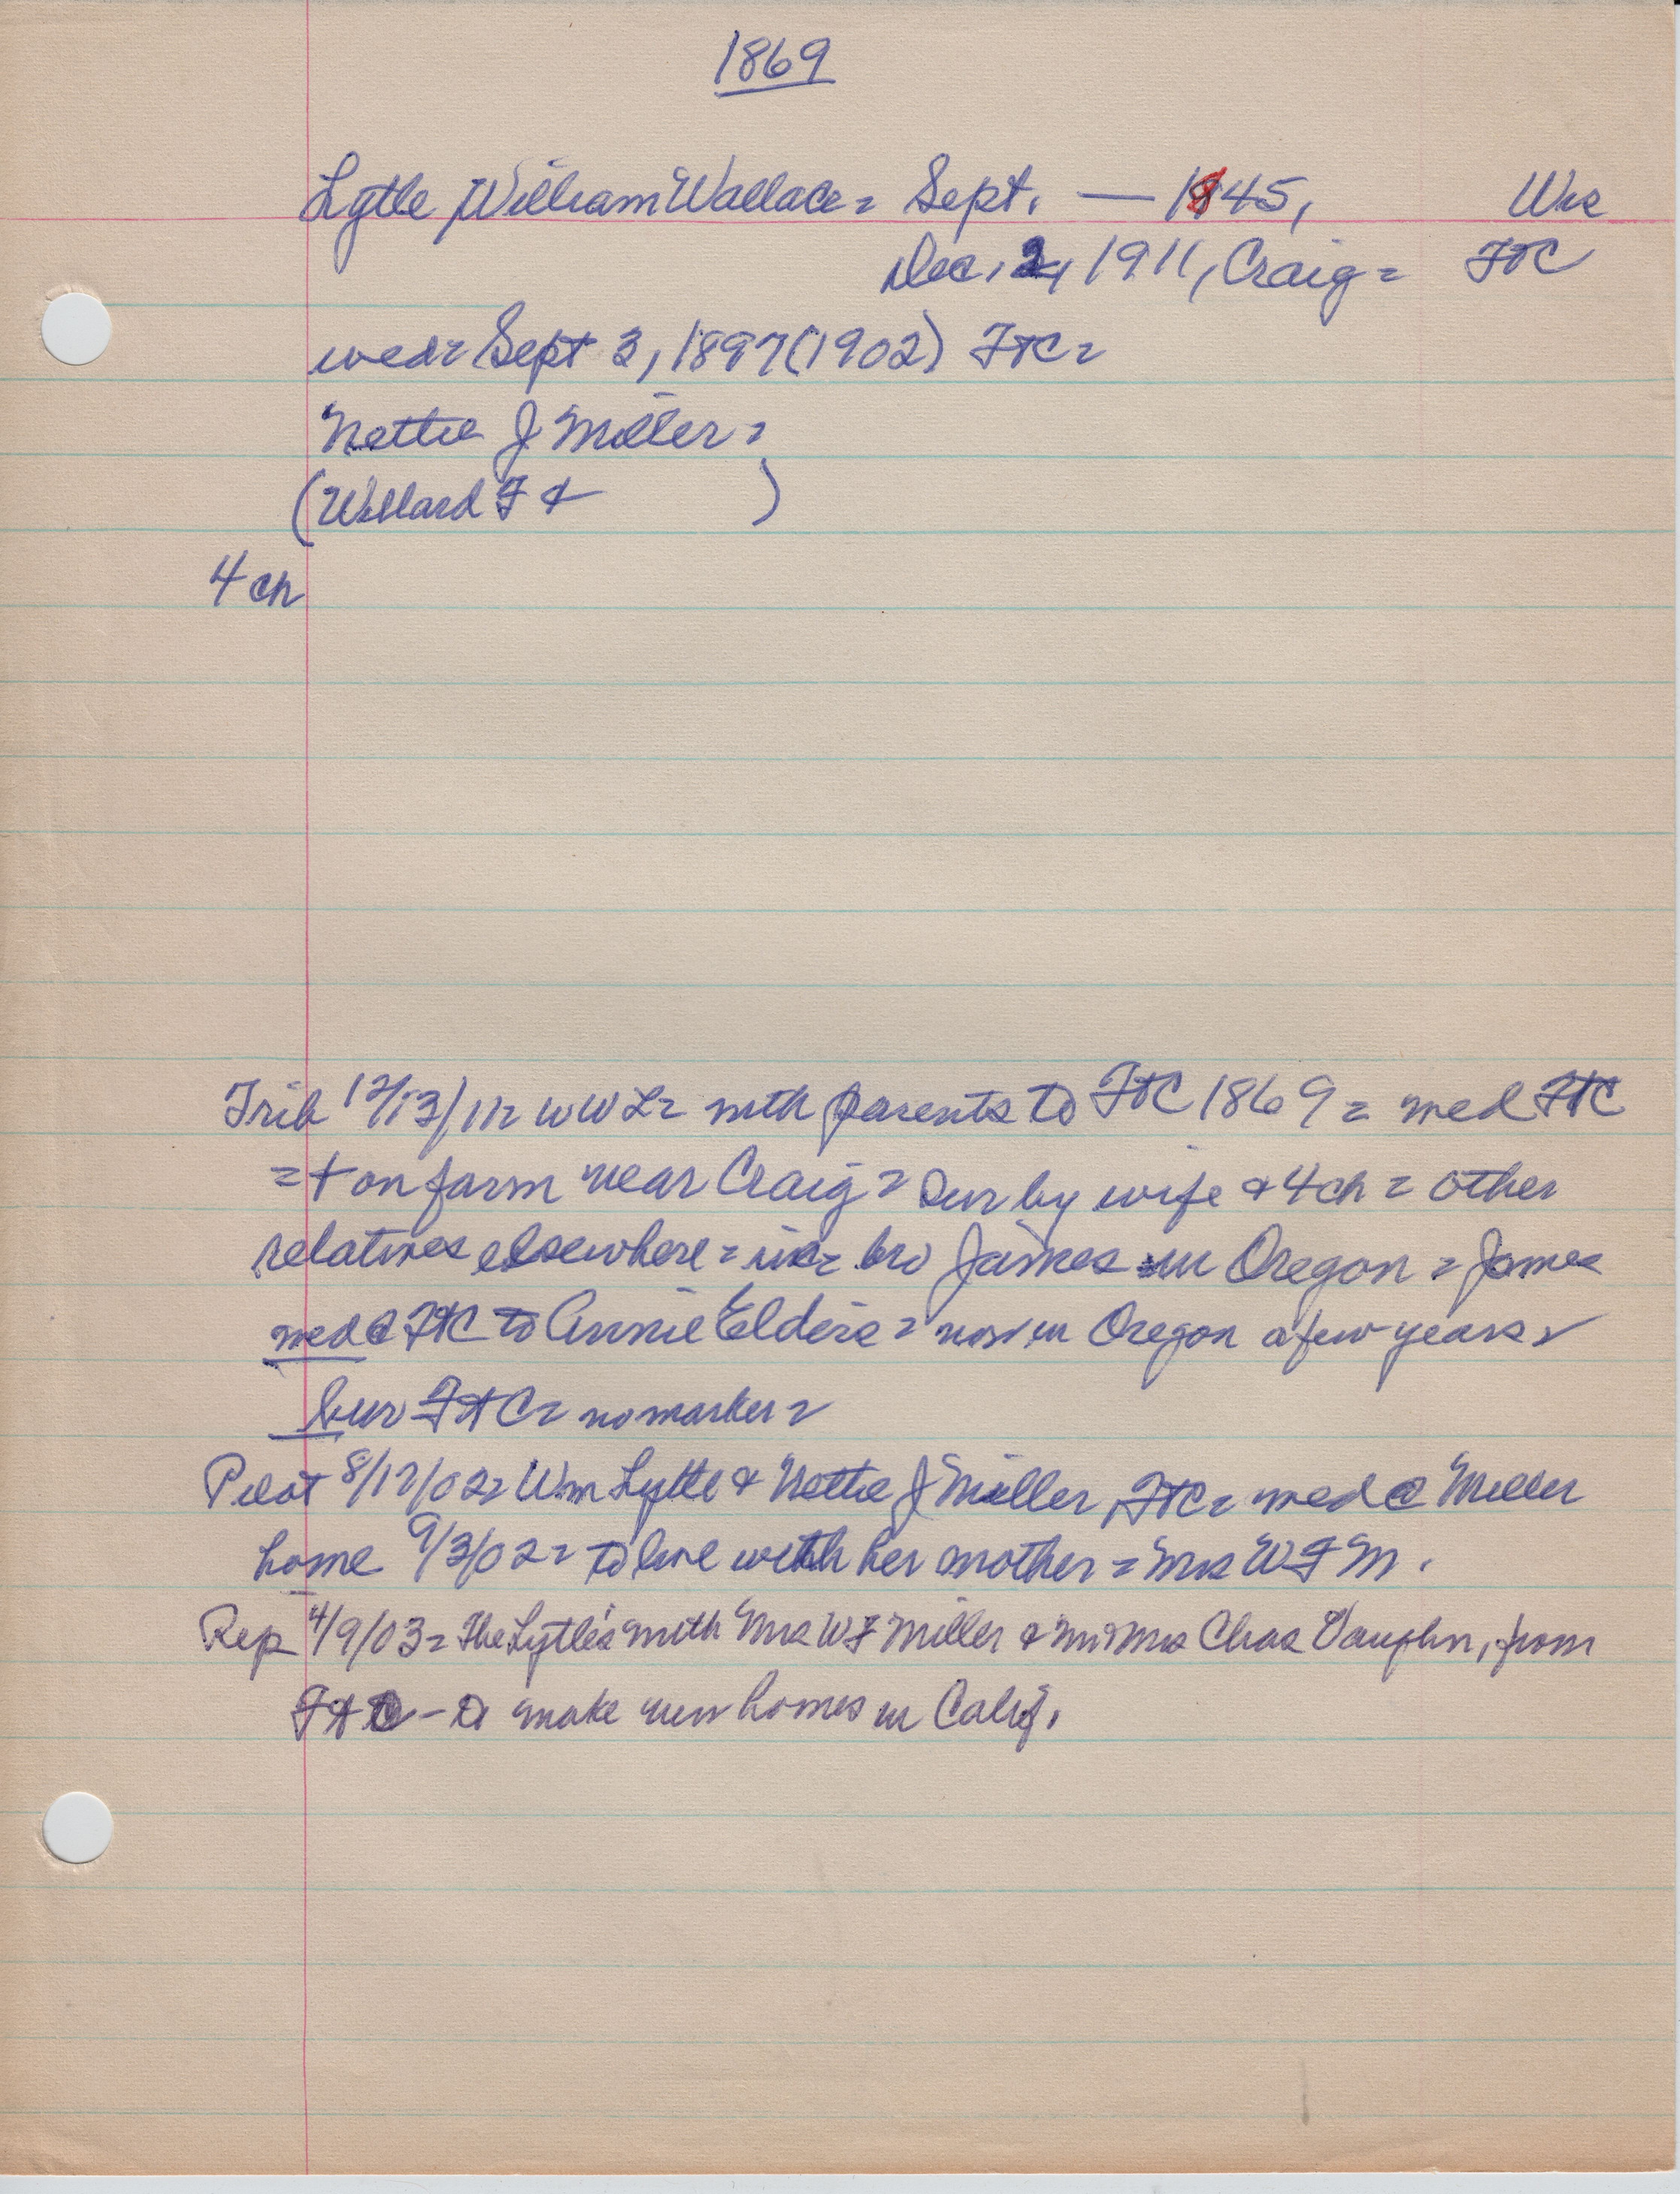 1869
Lytle, William Wallace = Sept. — 1845, Wis
Dec. 2, 1911, Craig = FtC
wed = Sept 3, 1897 (1902) FtC =
Nettie J Miller =
(Willard F & )
4 ch
Trib 12/13/11 = WWL = with parents to FtC 1869 = med FtC
= + on farm near Craig = Sur by wife & 4 ch = other
relatives elsewhere = inc = bro James in Oregon = James
med @ FtC to Annie Elders = now in Oregon a few years =
bur FtC = no marker =
Pilot 8/12/02 = Wm Lytle & Nettie J Miller, FtC = med @ Miller
home 9/3/02 = to live with her mother = Mrs W F M.
Rep 4/9/03 = The Lytle's with Mrs W F Miller & Mr Mrs Chas Vaughn, from
FtC - to make new homes in Calif.